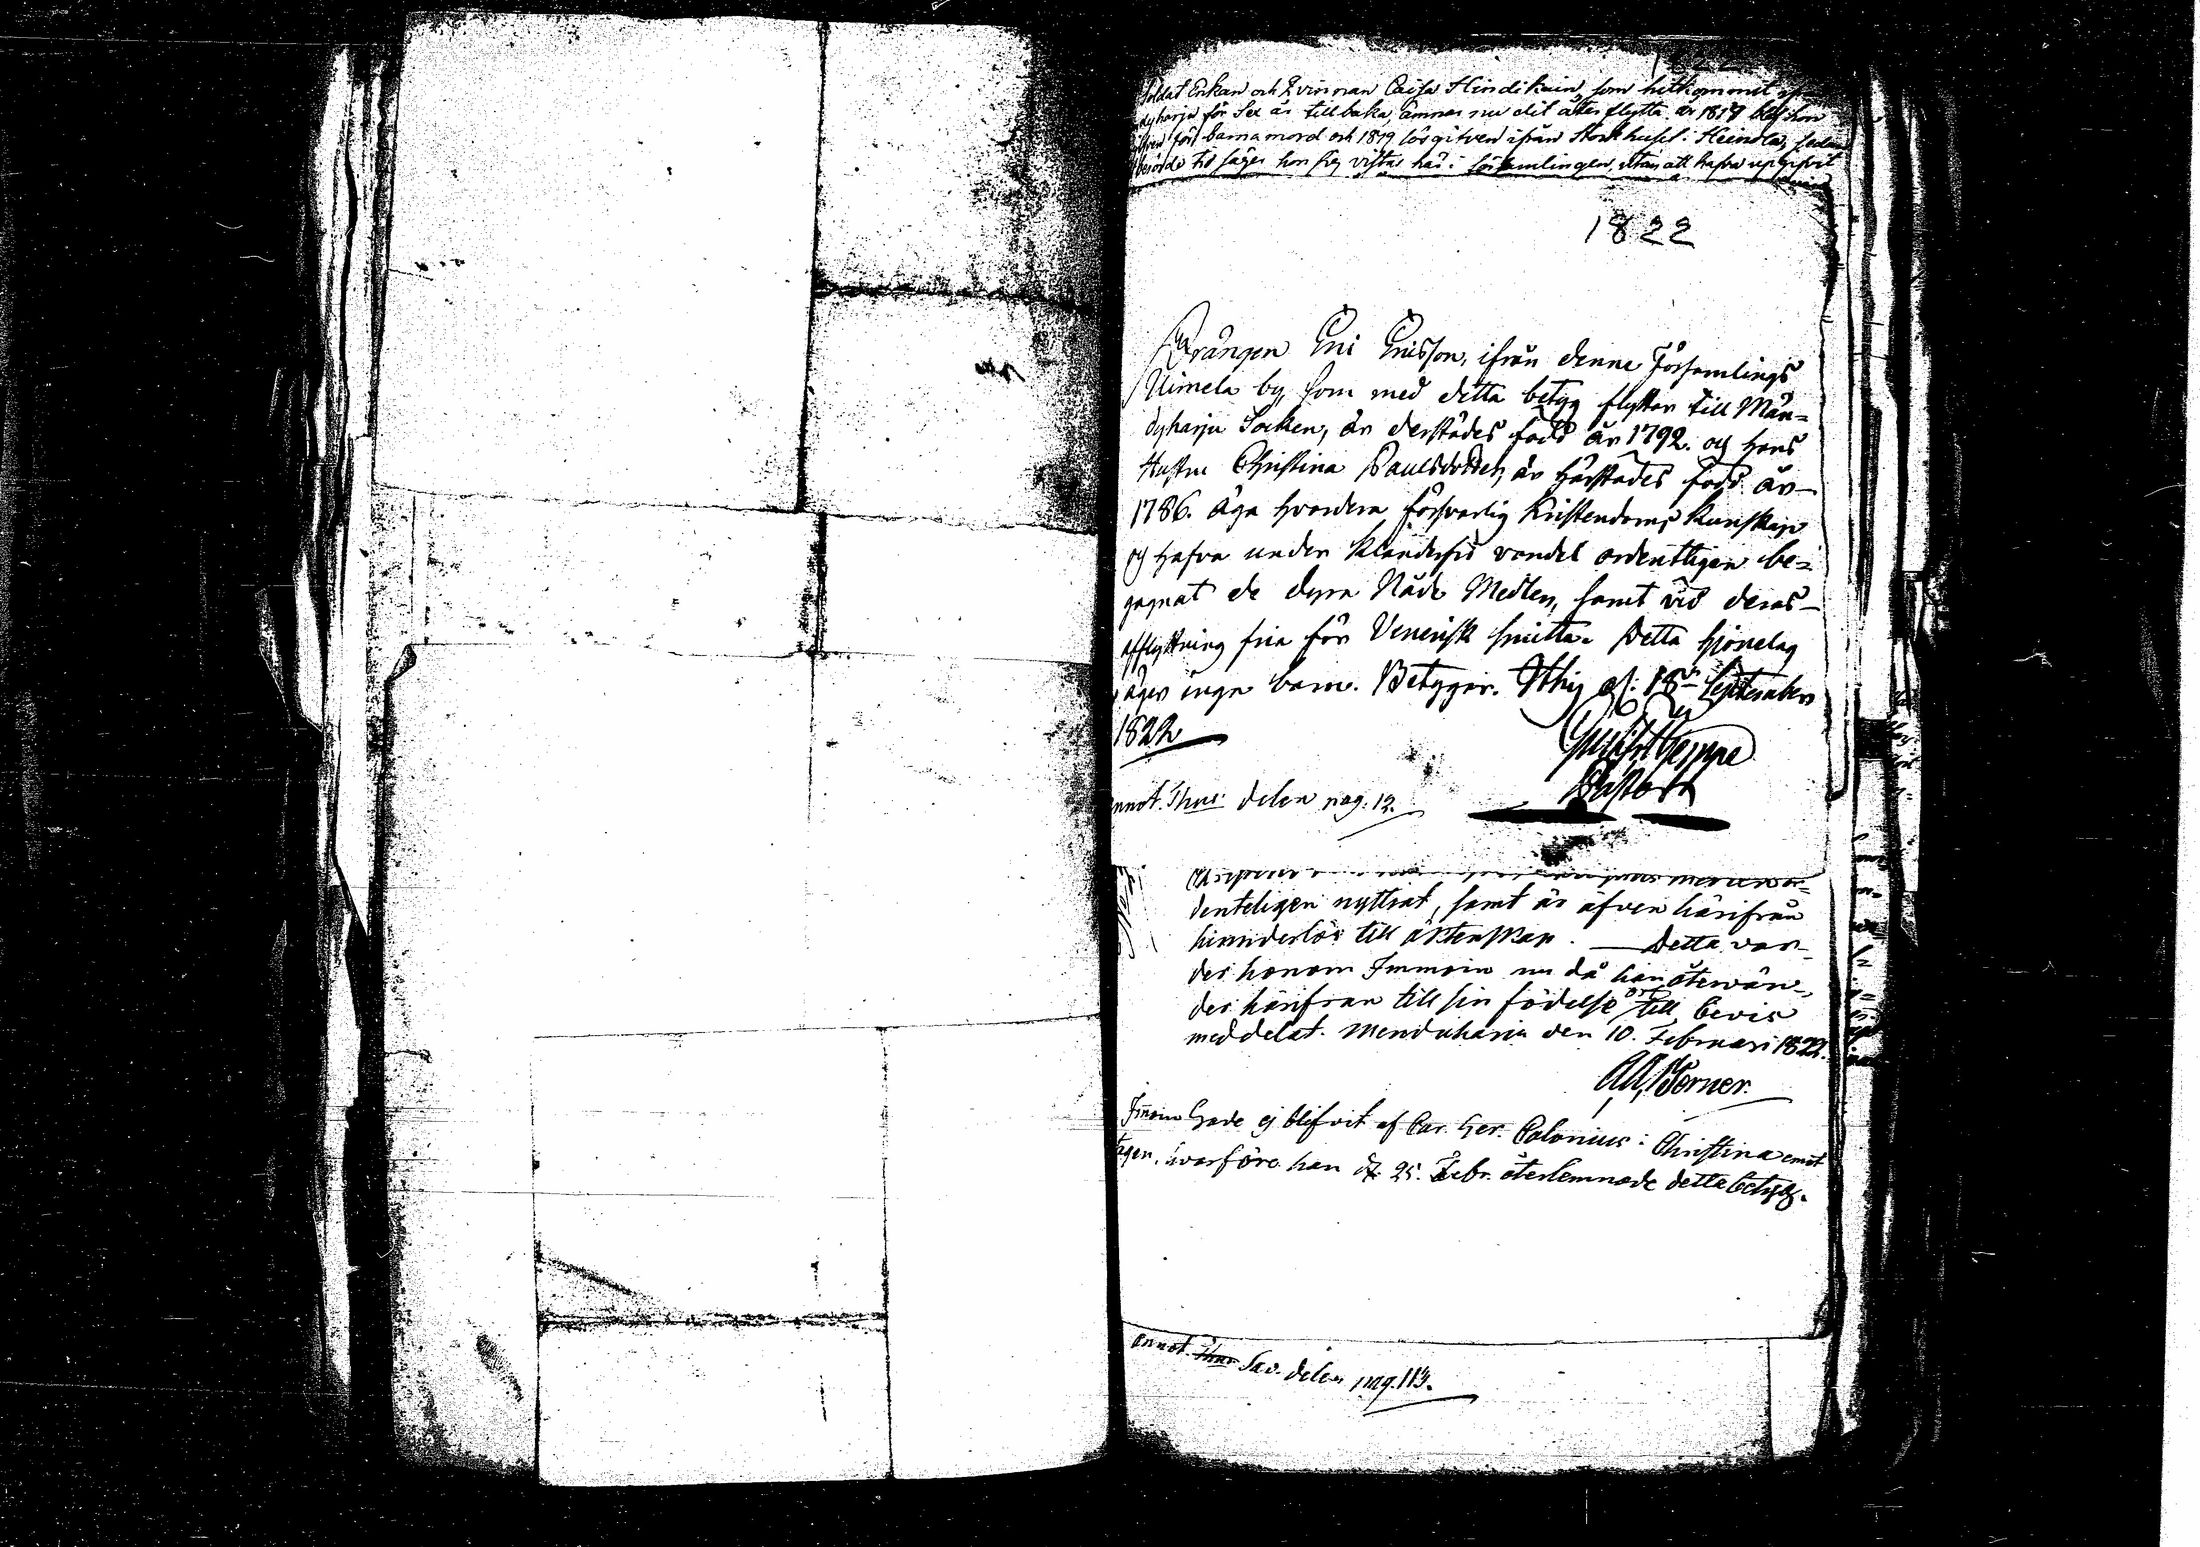 Soldat Enkan och Qvinnan Caisa Hindikain, som hitkommit
dyharju för Sex år tillbaka, ämnar nu dit åter flytta. år 1817 blef hon
för barnamord och 1819 lösgifven ifrån Storkhuset i Heinola, sedan
berörde tid säger hon sig vistas här i församlingen, utan att hafva uppgifvit
1822
Drängen Eric Ericsson, ifrån denne Församlings
Uimela by, som med detta betyg flyttar till Män-
dyharju Socken, är derstädes född år 1792. og hans
Hustru Christina Paulsdotter, är härstädes född år
1786. äga hvardera försvarlig Kristendoms Kunskap
og hafva under klanderfri vandel ordentligen be-
gagnat de dyra Nåde Medlen, samt vid deras
afflyttning fria för Venerisk smitta. Detta hjonelag
äger inga barn. Betygar. Sthig af: 18de September
1822
Pastor
annot. Thus delen pag. 12.
denteligen nyttjat, samt är äfven härifrån
hinnderlös till äktenskap. — Detta var-
der honom Immoin nu då han återwän-
der härifrån till sin födelse ort till bevis
meddelat. Menduharju den 10. Februari 1822.
Immoin hade ej blifvit af Car. Ger. Calonius i Christina emot
tagen, hvarföre han d. 25. Febr. återlemnade detta betyg.
annot. Thus Sav. delen pag. 113.